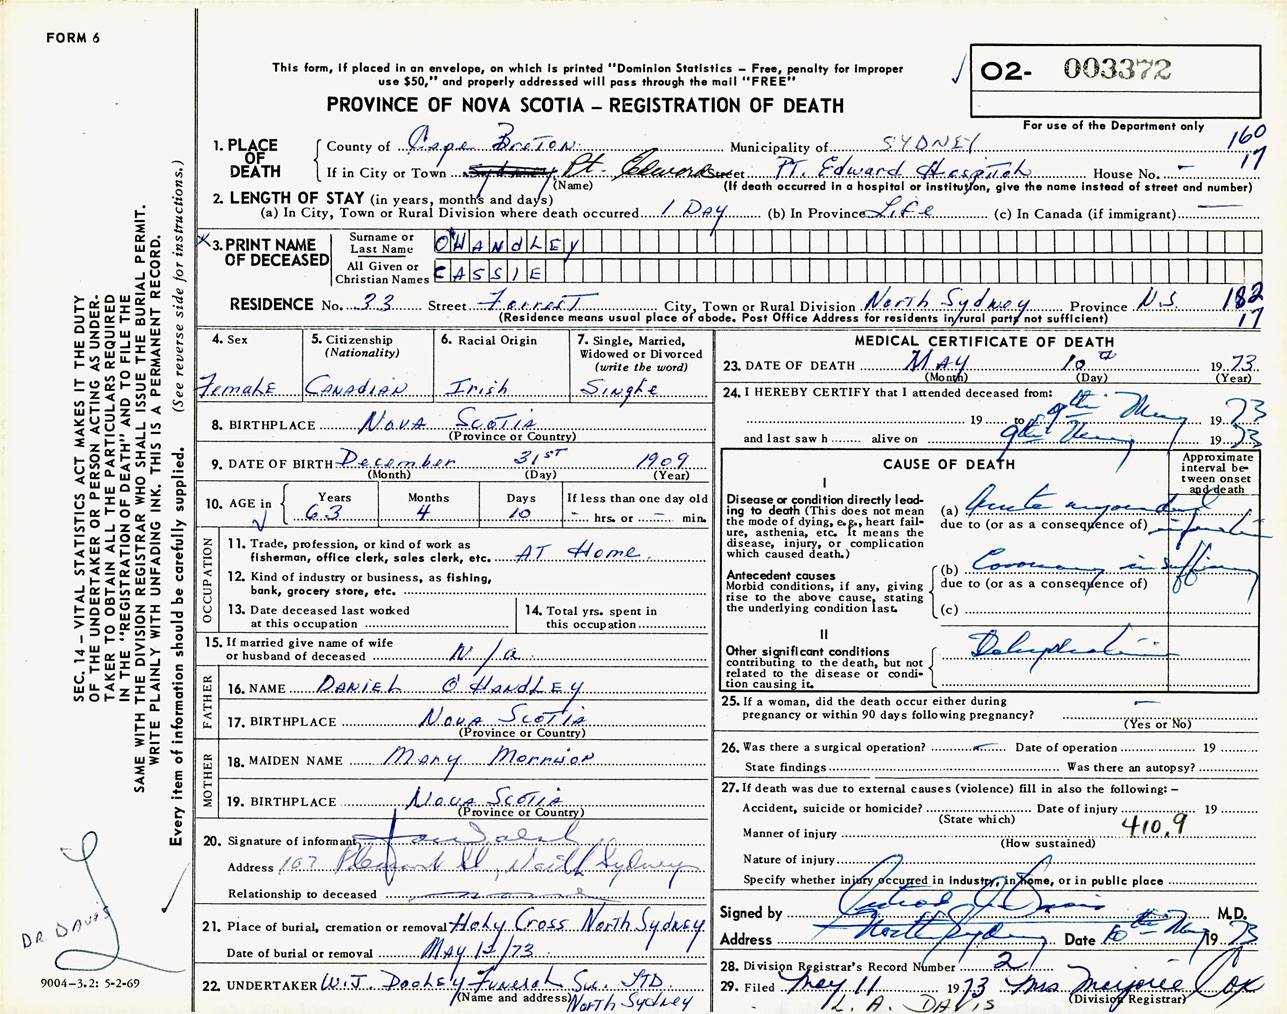 FORM 6
This form, if placed in an envelope, on which is printed "Dominion Statistics – Free, penalty for improper
use $50," and properly addressed will pass through the mail "FREE"
PROVINCE OF NOVA SCOTIA – REGISTRATION OF DEATH
O2- 003372
For use of the Department only
160
17
1. PLACE OF DEATH
County of Cape Breton Municipality of SYDNEY
If in City or Town Sydney Pt. Edward Street Pt. Edward Hospital House No. –
(Name) (If death occurred in a hospital or institution, give the name instead of street and number)
2. LENGTH OF STAY (in years, months and days)
(a) In City, Town or Rural Division where death occurred 1 Day (b) In Province Life (c) In Canada (if immigrant) —
3. PRINT NAME OF DECEASED
Surname or Last Name O'HANDLEY
All Given or Christian Names CASSIE
RESIDENCE No. 33 Street Forrest City, Town or Rural Division North Sydney Province N.S. 182
17
(Residence means usual place of abode. Post Office Address for residents in rural parts not sufficient)
4. Sex
Female
5. Citizenship
(Nationality)
Canadian
6. Racial Origin
Irish
7. Single, Married,
Widowed or Divorced
(write the word)
Single
8. BIRTHPLACE Nova Scotia
(Province or Country)
9. DATE OF BIRTH December 31st 1909
(Month) (Day) (Year)
10. AGE in
Years Months Days If less than one day old
63 4 10 – hrs. or – min.
OCCUPATION
11. Trade, profession, or kind of work as
fisherman, office clerk, sales clerk, etc. AT Home.
12. Kind of industry or business, as fishing,
bank, grocery store, etc.
13. Date deceased last worked
at this occupation
14. Total yrs. spent in
this occupation
15. If married give name of wife
or husband of deceased N/a
FATHER
16. NAME DANIEL O'HANDLEY
17. BIRTHPLACE Nova Scotia
(Province or Country)
MOTHER
18. MAIDEN NAME Mary Morrison
19. BIRTHPLACE Nova Scotia
(Province or Country)
20. Signature of informant
Address 107 Pleasant St, North Sydney
Relationship to deceased none
21. Place of burial, cremation or removal Holy Cross North Sydney
Date of burial or removal May 12/73
22. UNDERTAKER W.J. Dooley Funeral Ser. LTD.
(Name and address) North Sydney
MEDICAL CERTIFICATE OF DEATH
23. DATE OF DEATH May 10th 1973
(Month) (Day) (Year)
24. I HEREBY CERTIFY that I attended deceased from:
19 to 9th May 1973
and last saw h alive on 9th May 1973
CAUSE OF DEATH
Approximate
interval be-
tween onset
and death
I
Disease or condition directly lead-
ing to death (This does not mean
the mode of dying, e.g., heart fail-
ure, asthenia, etc. It means the
disease, injury, or complication
which caused death.)
(a) Acute myocardial
due to (or as a consequence of) infarction
Antecedent causes
Morbid conditions, if any, giving
rise to the above cause, stating
the underlying condition last.
(b) Coronary insufficiency
due to (or as a consequence of)
(c)
II
Other significant conditions
contributing to the death, but not
related to the disease or condi-
tion causing it.
Dehydration
25. If a woman, did the death occur either during
pregnancy or within 90 days following pregnancy? –
(Yes or No)
26. Was there a surgical operation? – Date of operation 19
State findings Was there an autopsy?
27. If death was due to external causes (violence) fill in also the following: –
Accident, suicide or homicide? Date of injury 19
(State which)
410.9
Manner of injury
(How sustained)
Nature of injury
Specify whether injury occurred in Industry, in home, or in public place
Signed by Davis M.D.
Address North Sydney Date 10th May 1973
28. Division Registrar's Record Number 2
29. Filed May 11 1973 Mrs Marjorie Cox
(Division Registrar)
L. A. DAVIS
SEC. 14 – VITAL STATISTICS ACT MAKES IT THE DUTY
OF THE UNDERTAKER OR PERSON ACTING AS UNDER-
TAKER TO OBTAIN ALL THE PARTICULARS REQUIRED
IN THE "REGISTRATION OF DEATH" AND TO FILE THE
SAME WITH THE DIVISION REGISTRAR WHO SHALL ISSUE THE BURIAL PERMIT.
WRITE PLAINLY WITH UNFADING INK. THIS IS A PERMANENT RECORD.
Every item of information should be carefully supplied. (See reverse side for instructions.)
DR. DAVIS
9004-3.2: 5-2-69